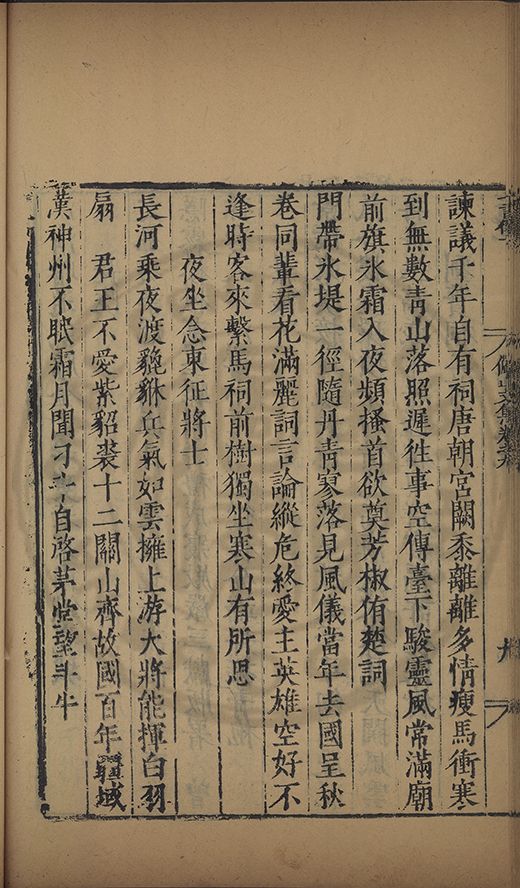 諫議千年自有祠唐朝宮闕黍離離多情瘦馬衝寒
到無數青山落照遲徃事空傳臺下駿靈風常滿廟
前旗氷霜入夜頻搔首欲奠芳椒侑楚詞
門帶氷堤一徑隨丹青寥落見風儀當年去國呈秋
卷同輩看花滿麗詞言論縱危終愛主英雄空好不
逢時客來繫馬祠前樹獨坐寒山有所思
夜坐念東征將士
長河乘夜渡貔貅兵氣如雲擁上游大將能揮白羽
扇　君王不愛紫貂裘十二關山齊故國百年疆域
漢神州不眠霜月聞刁斗自啓茅堂望斗牛